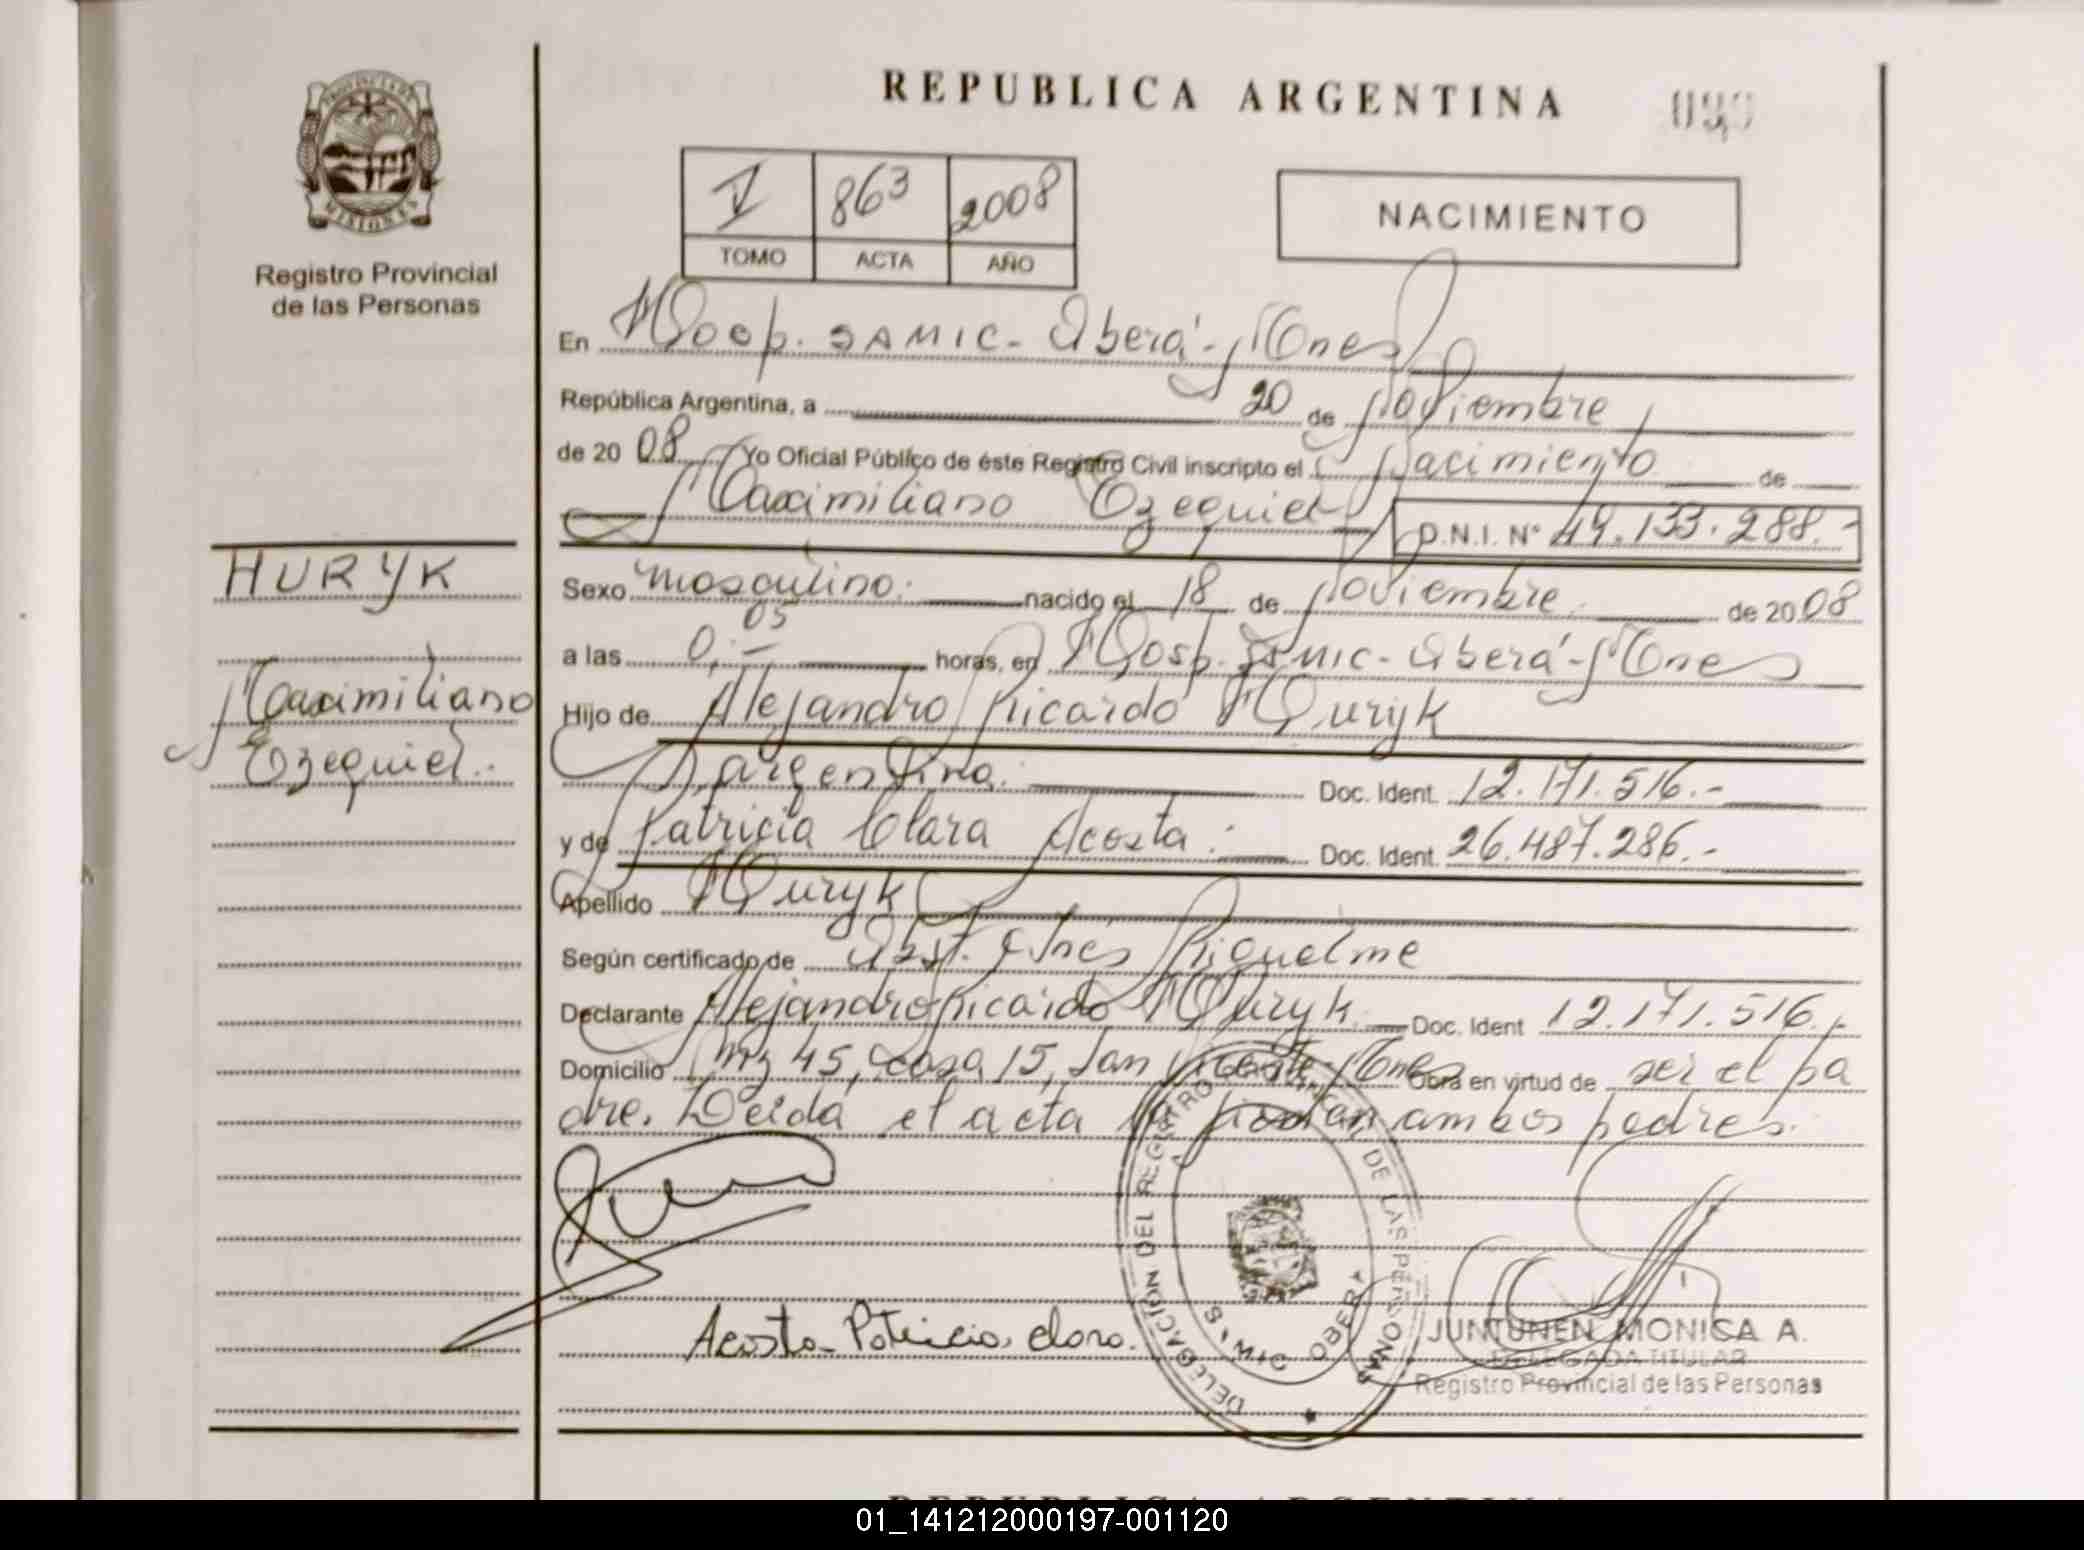 REPUBLICA ARGENTINA
PROVINCIA DE
MISIONES
Registro Provincial
de las Personas
V 863 2008
TOMO ACTA AÑO
NACIMIENTO
En Hosp. SAMIC - Oberá - Mnes
República Argentina, a 20 de Noviembre
de 20 08 Yo Oficial Público de éste Registro Civil inscripto el Nacimiento de
Maximiliano Ezequiel D.N.I. Nº 49.133.288.-
HURYK
Maximiliano
Ezequiel.-
Sexo masculino. nacido el 18 de Noviembre. de 20 08
a las 0,05 horas, en Hosp. SAMIC - Oberá - Mnes
Hijo de Alejandro Ricardo Huryk
argentina. Doc. Ident. 12.171.516.-
y de Patricia Clara Acosta.- Doc. Ident. 26.487.286.-
Apellido Huryk
Según certificado de Obst. Inés Riquelme
Declarante Alejandro Ricardo Huryk. Doc. Ident 12.171.516.-
Domicilio Mz 45, casa 15, San Vicente, Mnes Obra en virtud de ser el pa
dre. Leida el acta la firman ambos padres.
DELEGACION DEL REGISTRO DE LAS PERSONAS
SAMIC OBERA
Acosta Patricia Clara.
JUNTUNEN MONICA A.
DELEGADA TITULAR
Registro Provincial de las Personas
REPUBLICA ARGENTINA
01_141212000197-001120